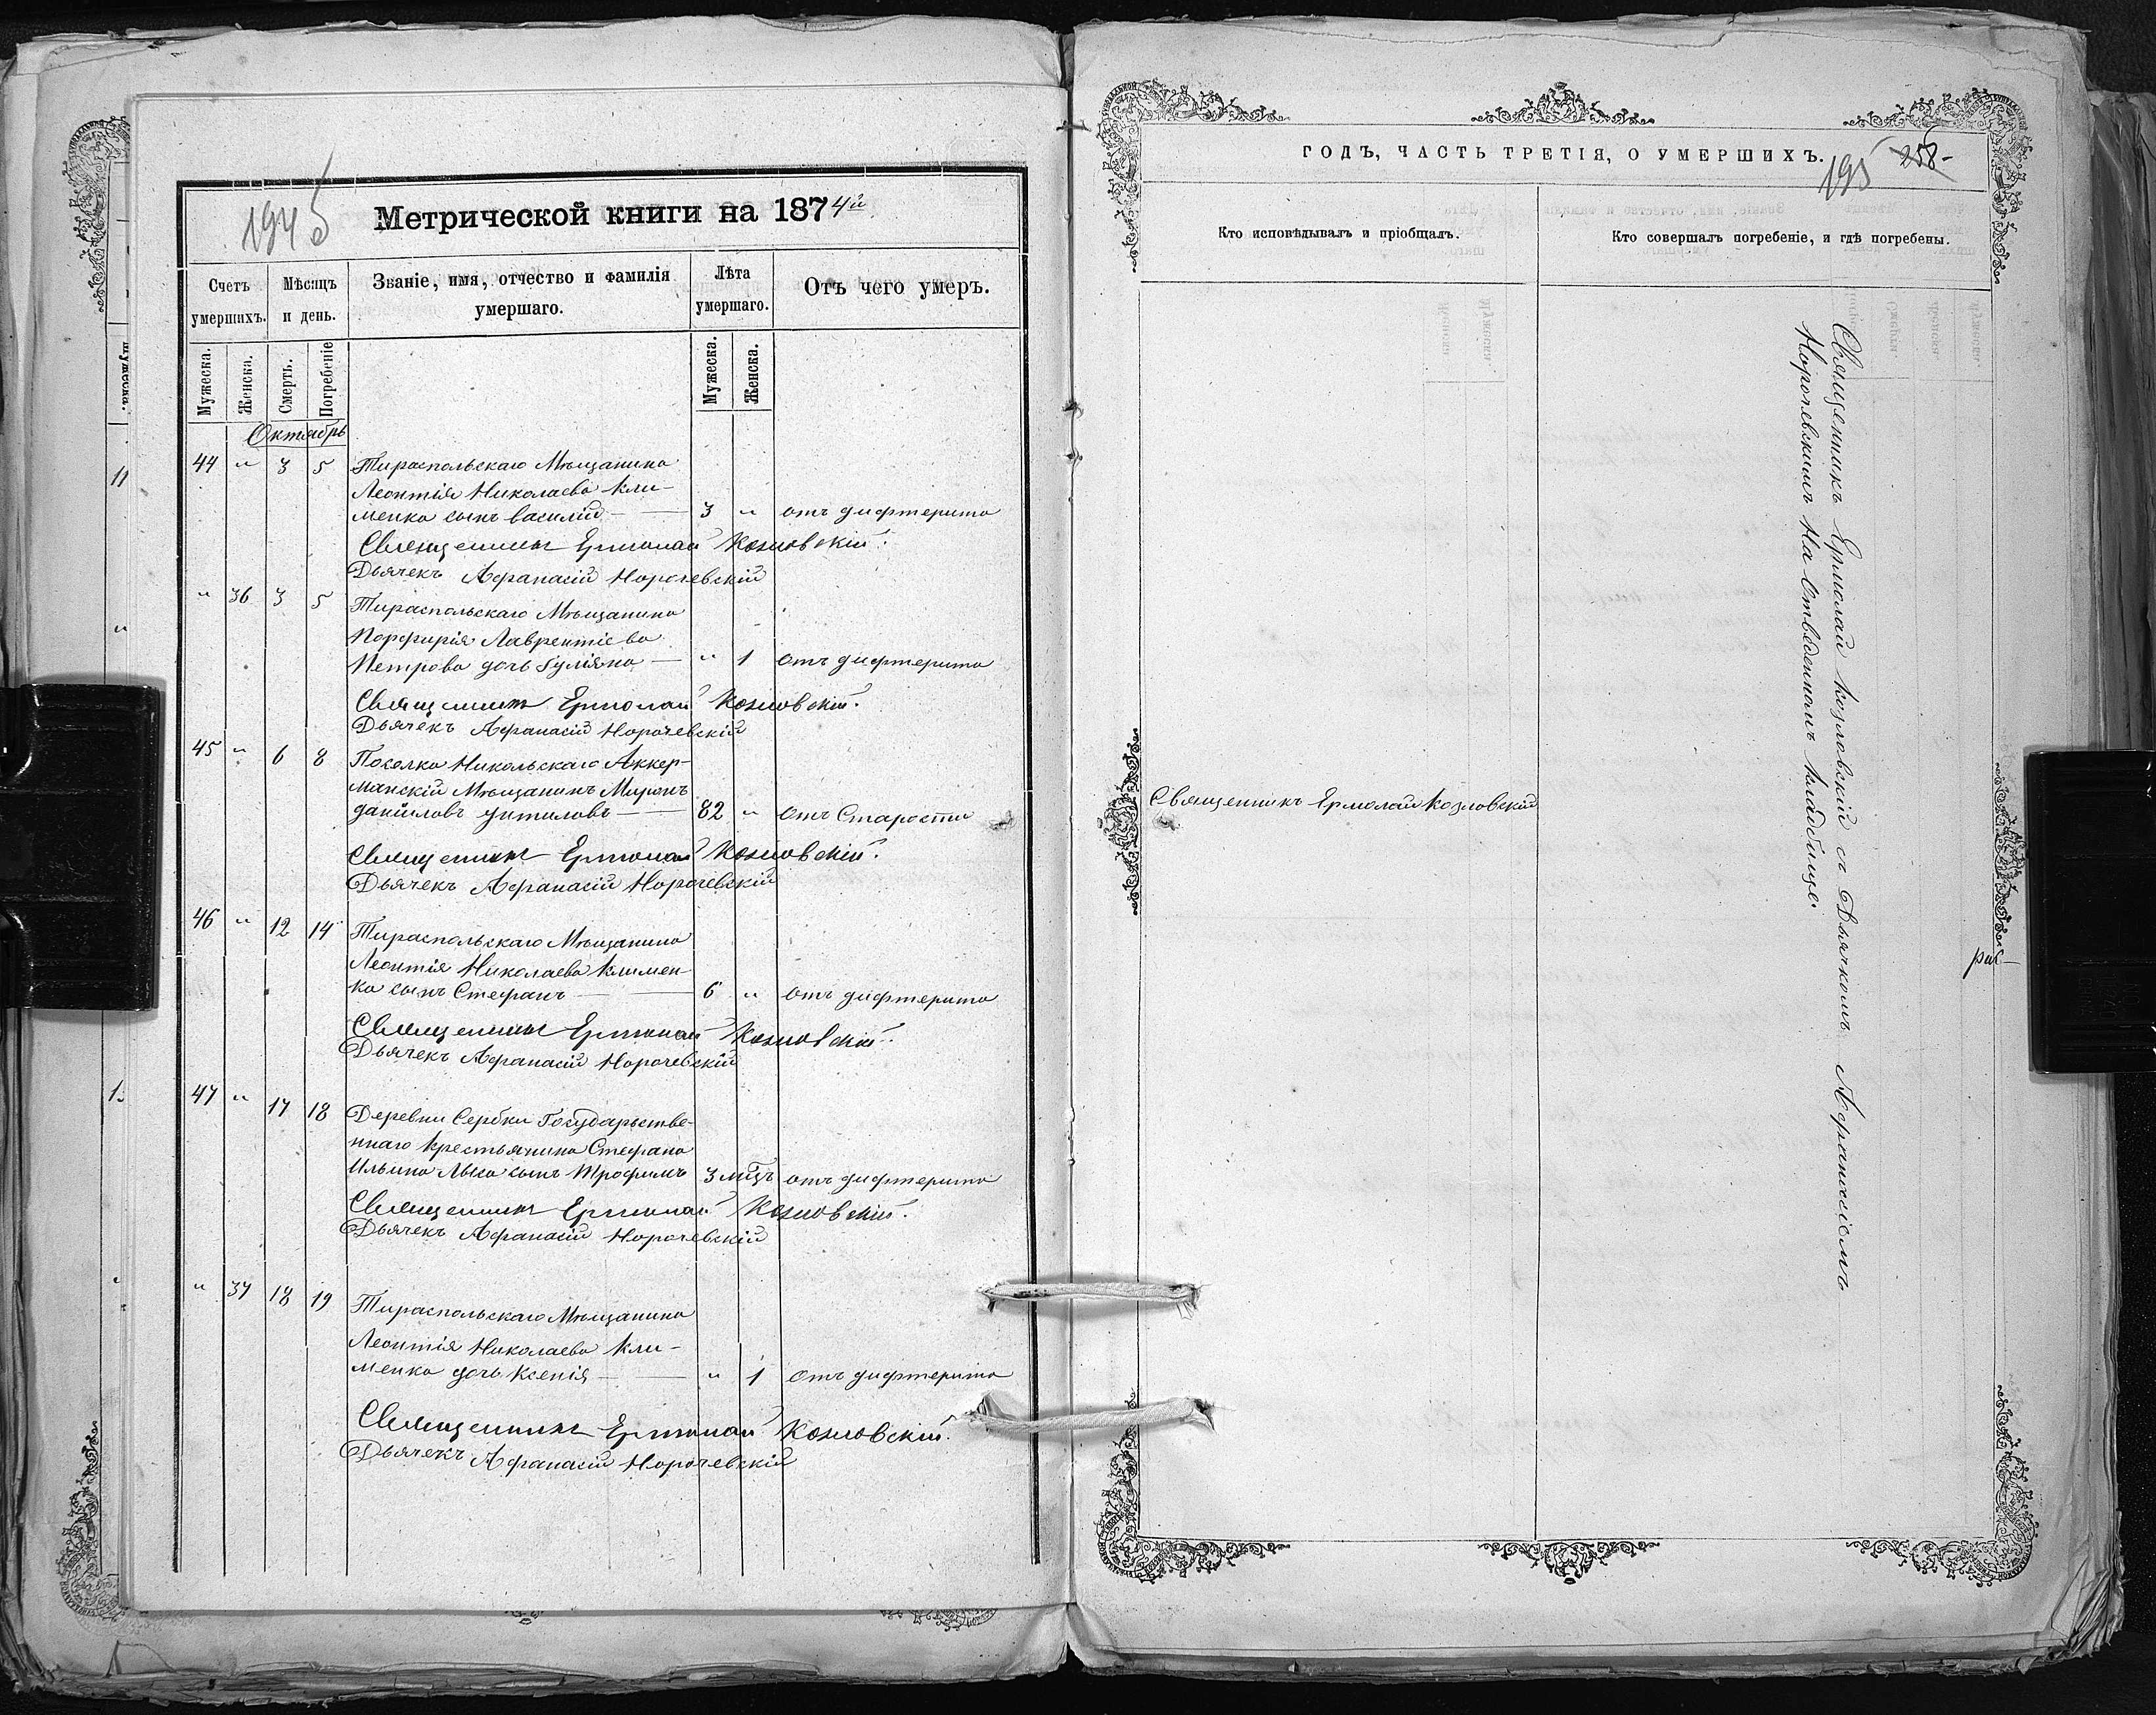 194 об
Метрической книги на 1874й
Счетъ умершихъ.
Мѣсяцъ и день.
Званіе, имя, отчество и фамилія умершаго.
Лѣта умершаго.
Отъ чего умеръ.
Мужеска.
Женска.
Смерть.
Погребеніе
Мужеска.
Женска.
Октябрь
44 " 3 5 Тираспольскаго Мѣщанина
Леонтія Николаева Кли-
менка сынъ Василій 3 " отъ дифтерита
Священникъ Ермолай Козловскій.
Дьячекъ Афанасій Норочевскій
" 36 3 5 Тираспольскаго Мѣщанина
Порфирія Лаврентіева
Петрова дочь Гуліяна " 1 отъ дифтерита
Священникъ Ермолай Козловскій.
Дьячекъ Афанасій Норочевскій
45 " 6 8 Поселка Никольскаго Аккер-
манскій Мѣщанинъ Миронъ
Даніиловъ 82 " отъ Старости
Священникъ Ермолай Козловскій.
Дьячекъ Афанасій Норочевскій
46 " 12 14 Тираспольскаго Мѣщанина
Леонтія Николаева Климен-
ка сынъ Стефанъ 6 " отъ дифтерита
Священникъ Ермолай Козловскій.
Дьячекъ Афанасій Норочевскій
47 " 17 18 Деревни Сербки Государстве-
ннаго крестьянина Стефана
Ильина сынъ Трофимъ 3 мцъ отъ дифтерита
Священникъ Ермолай Козловскій.
Дьячекъ Афанасій Норочевскій
" 37 18 19 Тираспольскаго Мѣщанина
Леонтія Николаева Кли-
менка дочь Ксенія " 1 отъ дифтерита
Священникъ Ермолай Козловскій.
Дьячекъ Афанасій Норочевскій
ГОДЪ, ЧАСТЬ ТРЕТІЯ, О УМЕРШИХЪ.
195 258
Кто исповѣдывалъ и пріобщалъ.
Кто совершалъ погребеніе, и гдѣ погребены.
Священникъ Ермолай Козловскій
Священникъ Ермолай Козловскій съ Дьячкомъ Афанасіемъ
Норочевскимъ На Отведенномъ кладбище.